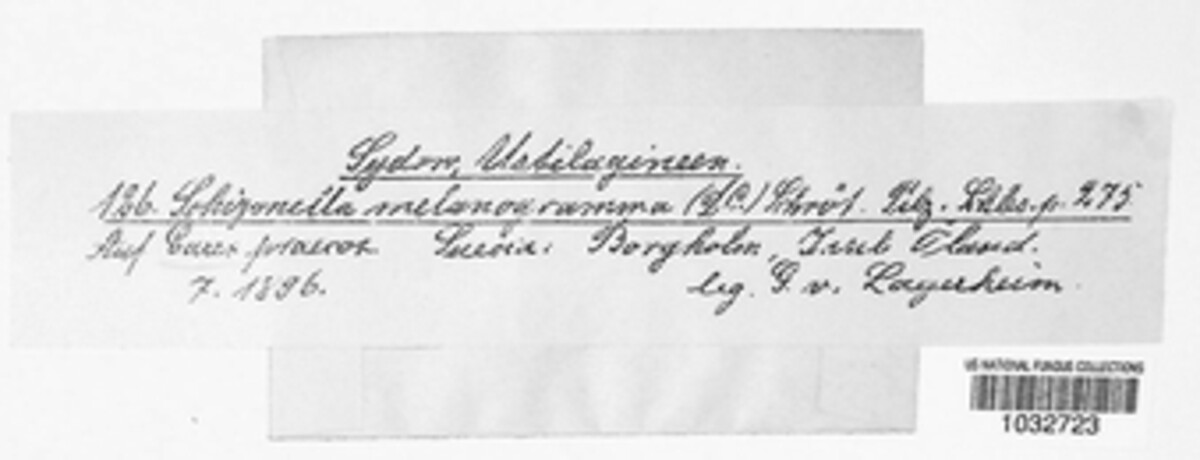 Sydow, Ustilagineen.
186. Schizonella melanogramma (DC) Schröt. Pilz. Schles. p. 275
Auf Carex praecox Suecia: Borgholm, Insel Öland.
7. 1896. leg. G. v. Lagerheim.
US NATIONAL FUNGUS COLLECTIONS
1032723